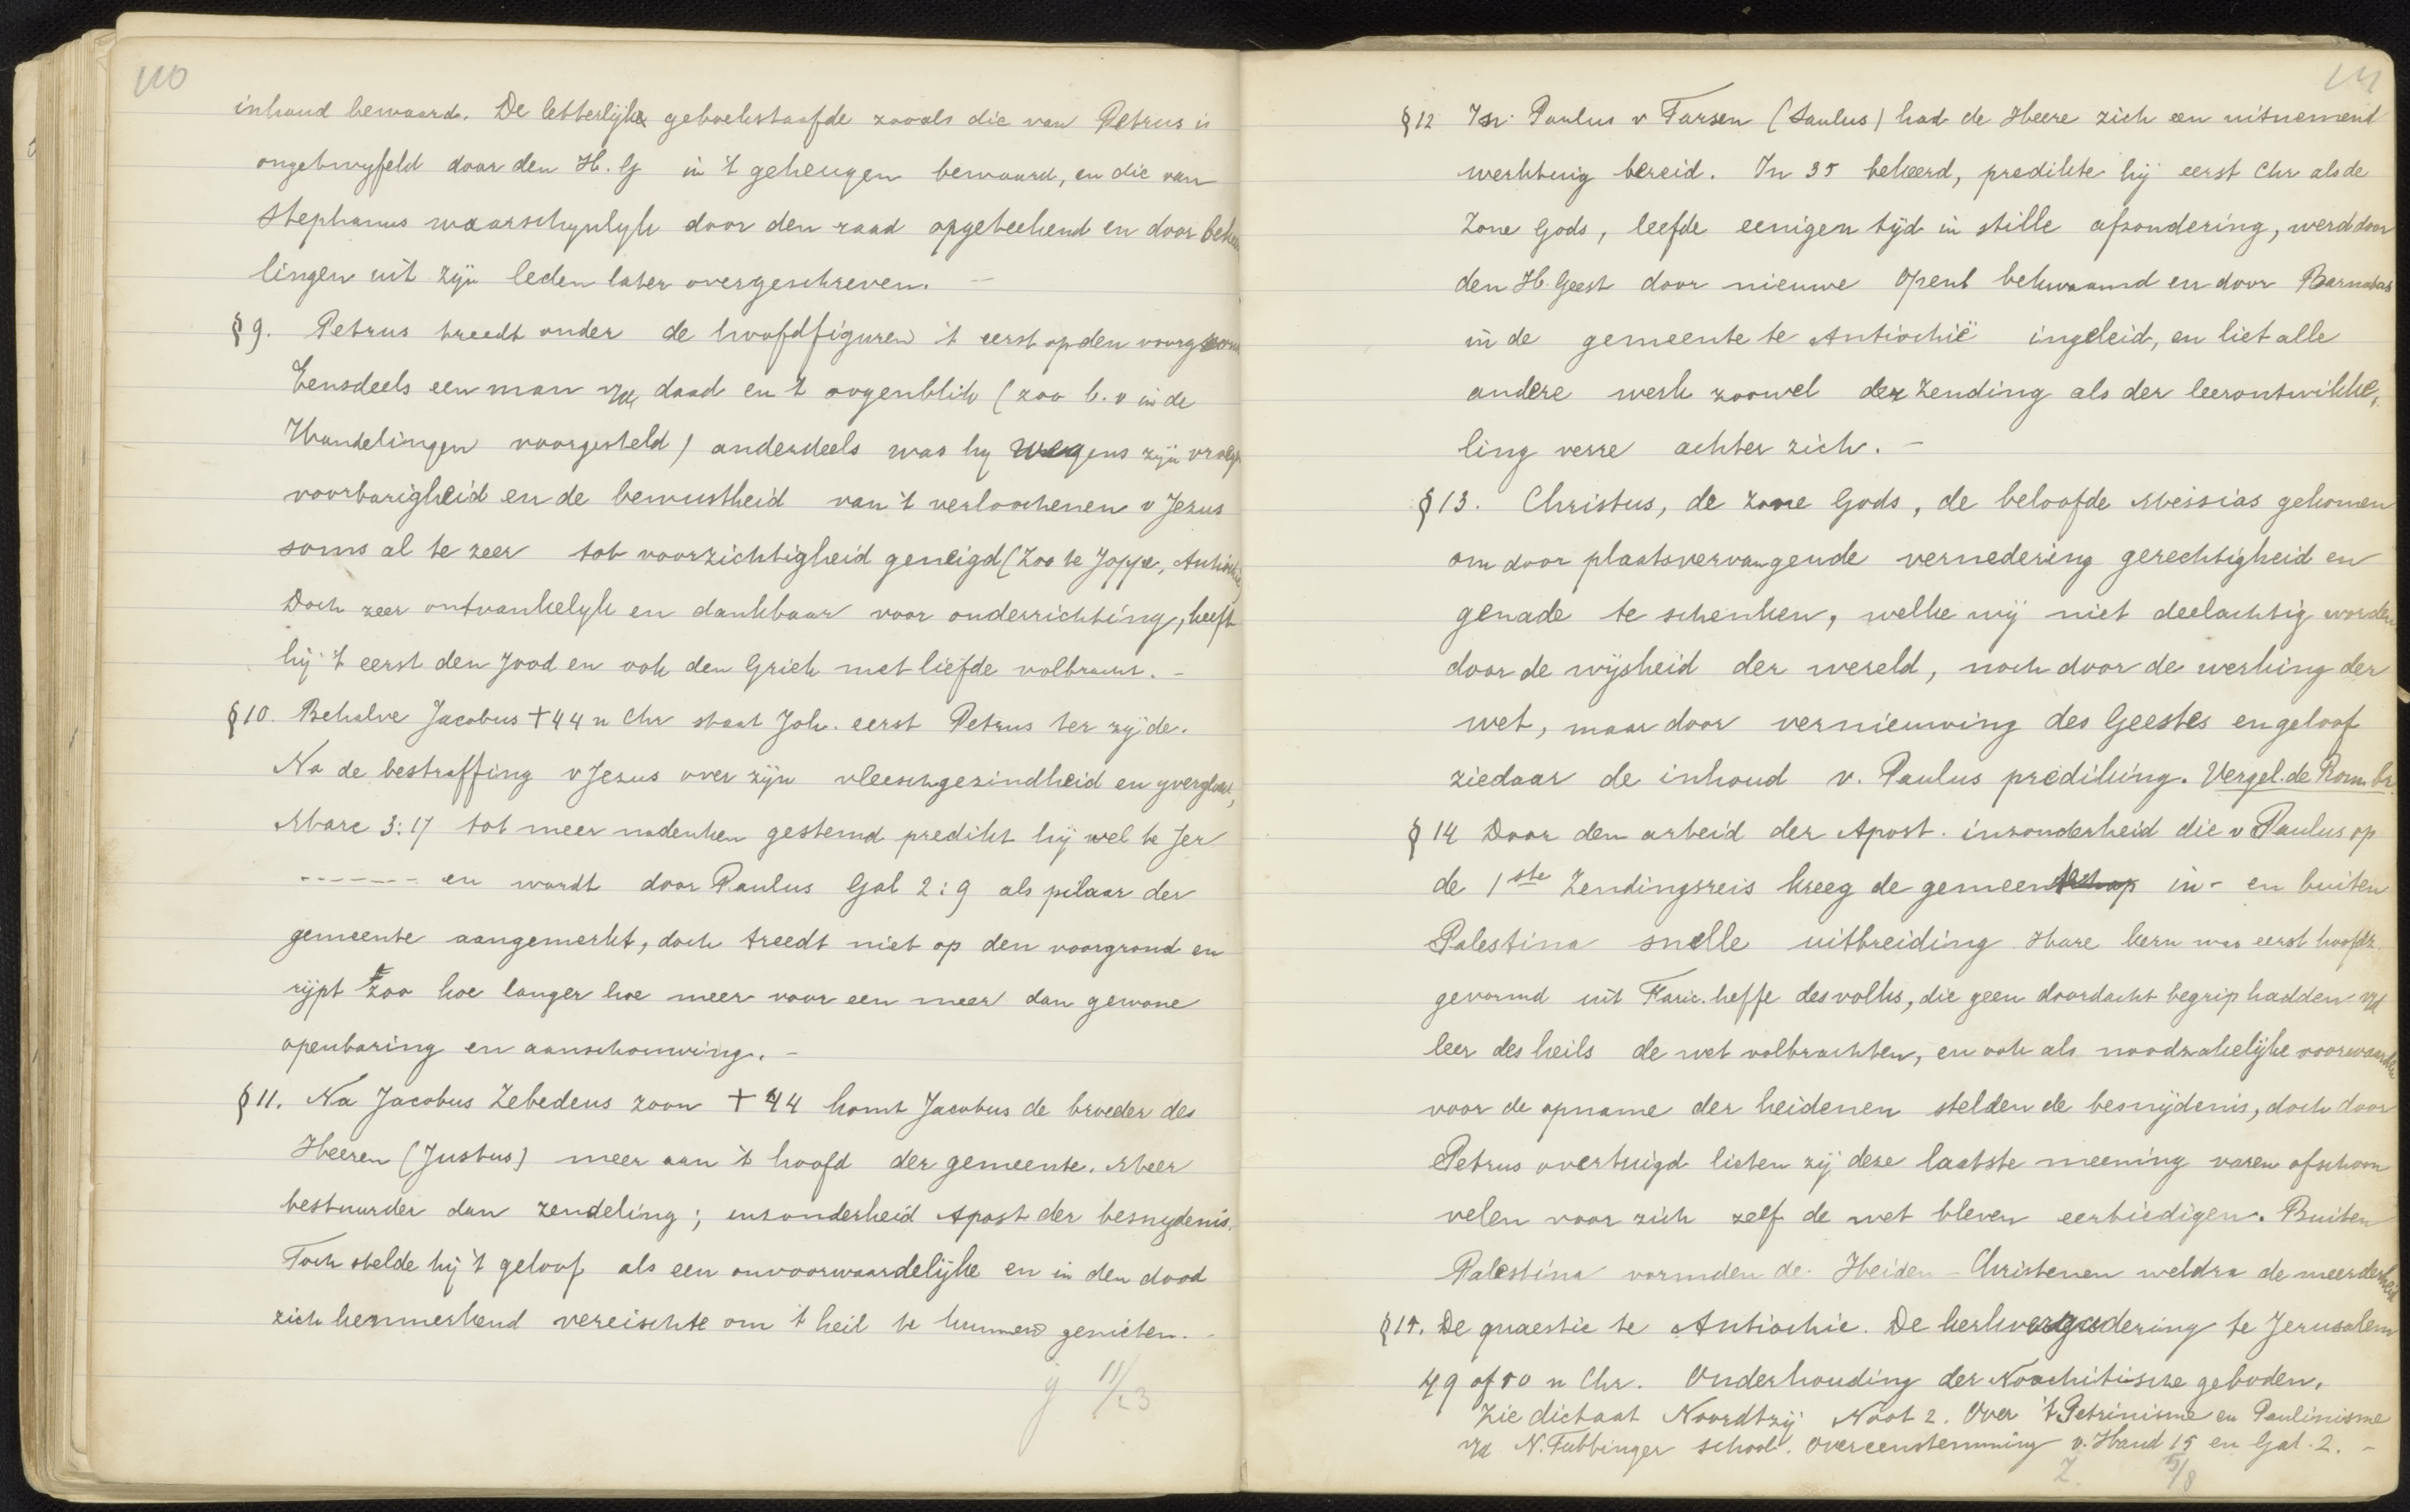 110
inhoud bewaard. De letterlijke geboekstaafde zooals die van Petrus is
ongetwyfeld door den H. G in 't geheugen bewaard, en die van
Stephanus waarschynlyk door den raad opgeteekend en door bekee
lingen uit zijn leden later overgeschreven. —
§ 9. Petrus treedt onder de hoofdfiguren 't eerst op den voorgrond
Eensdeels een man v/d daad en 't oogenblik (zoo b. v in de
Handelingen voorgesteld) anderdeels was hy wegens zijn vroeg
voorbarigheid en de bewustheid van 't verloochenen v Jezus
soms al te zeer tot voorzichtigheid geneigd (Zoo te Joppe, Antiochie,
Doch zeer ontvankelyk en dankbaar voor onderrichting, heeft
hij 't eerst den Jood en ook den Griek met liefde volbracht. –
§ 10. Behalve Jacobus † 44 n Chr staat Joh. eerst Petrus ter zijde.
Na de bestraffing v Jezus over zijn vleeschgezindheid en
Marc 3:17 tot meer nadenken gestemd predikt hij wel te Jer
------- en wordt door Paulus Gal 2:9 als pilaar der
gemeente aangemerkt, doch treedt niet op den voorgrond en
rijpt zoo hoe langer hoe meer voor een meer dan gewone
openbaring en aanschouwing. –
§ 11. Na Jacobus Zebedeus zoon † 44 komt Jacobus de broeder des
Heeren (Justus) meer aan 't hoofd der gemeente. Meer
bestuurder dan zendeling; inzonderheid Apost der besnydenis.
Toch stelde hij 't geloof als een onvoorwaardelijke en in den dood
zich kenmerkend vereischte om 't heil te kunnen genieten. -
11/23
111
§ 12 In Paulus v Tarsen (Saulus) had de Heere zich een uitnemend
werktuig bereid. In 35 bekeerd, predikte hij eerst Chr als de
Zone Gods, leefde eenigen tijd in stille afzondering, werd door
den H. Geest door nieuwe Openb bekwaamd en door Barnabas
in de gemeente te Antiochië ingeleid, en liet alle
andere werk zoowel der Zending als der leerontwikke,
ling verre achter zich. –
§ 13. Christus, de Zone Gods, de beloofde Messias gekomen
om door plaatsvervangende vernedering gerechtigheid en
genade te schenken, welke wij niet deelachtig worden
door de wijsheid der wereld, noch door de werking der
wet, maar door vernieuwing des Geestes en geloof
ziedaar de inhoud v. Paulus prediking. Vergel. de Rom. br.
§ 14 Door den arbeid der Apost. inzonderheid die v Paulus op
de 1ste Zendingsreis kreeg de gemeenteschap in- en buiten
Palestina snelle uitbreiding Hare kern was eerst hoofdz.
gevormd uit Faric. heffe des volks, die geen doordacht begrip hadden v/d
leer des heils de wet volbrachten, en ook als noodzakelijke voorwaarden
voor de opname der heidenen stelden de besnijdenis, doch door
Petrus overtuigd lieten zij deze laatste meening varen ofschoon
velen voor zich zelf de wet bleven eerbiedigen. Buiten
Palestina vormden de Heiden-Christenen weldra de meerderheid
§ 15. De quaestie te Antiochie. De kerkvergadering te Jerusalem
49 of 50 n Chr. Onderhouding der Noachitische geboden.
Zie dictaat Noordtzij Noot 2. Over 't Petrinisme en Paulinisme
v/d N. Tubbinger school. overeenstemming v. Hand 15 en Gal. 2. –
Z. 5/8